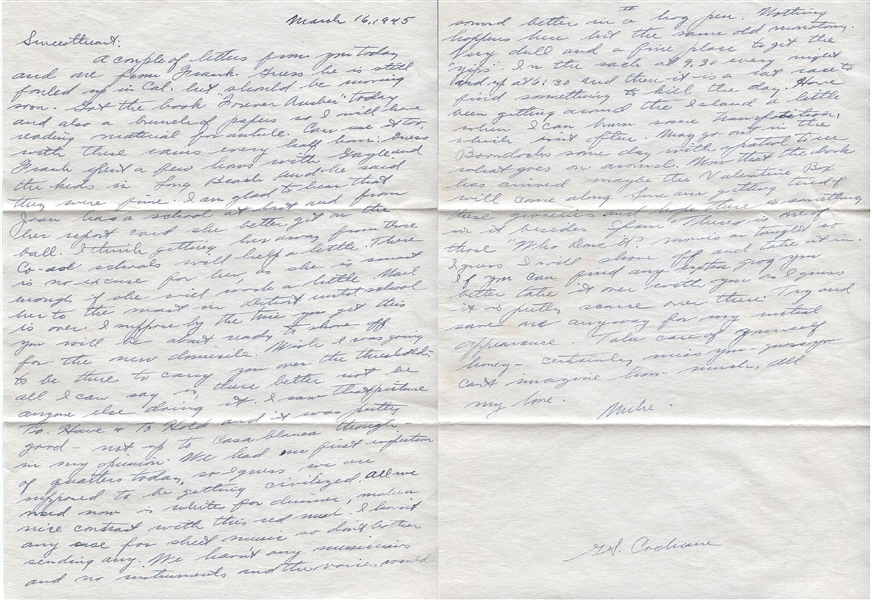 March 16, 1945
Sweetheart.
A couple of letters from you today
and one from Frank. Guess he is still
fouled up in Cal. but should be moving
soon. Got the book "Forever Amber" today
and also a bunch of papers so I will have
reading material for awhile. Can use it too,
with these rains every half hour. Guess
Frank spent a few hours with Gayle and
the kids in Long Beach and he said
they were fine. I am glad to hear that
Joan has a school at last and from
her report card she better get on the
ball. I think getting her away from those
Co-ed schools will help a little. There
is no excuse for her, as she is smart
enough if she will work a little. Wait
her to the in Detroit until school
is over. I suppose by the time you get this
you will be about ready to shove off
for the new domicile. Wish I was going
to be there to carry you over the threshold -
all I can say is, there better not be
anyone else doing it. I saw that picture
To Have & To Hold and it was pretty
good - not up to Casablanca though -
in my opinion. We had our first inspection
of quarters today, so I guess we are
supposed to be getting civilized. All we
need now is whites for dinner, make a
nice contrast with this red mud. I haven't
any use for sheet music so don't bother
sending any. We haven't any musicians
and no instruments and the voices would
II
sound better in a hog pen. Nothing
happens here but the same old monotony.
Very dull and a fine place to get the
"yips". In the sack at 9:30 every night
and up at 6:30 and then it is a rat race to
find something to kill the day. Have
been getting around the Island a little
when I can bum some transportation,
which isn't often. May go out in the
Boondocks some day with a patrol to see
what goes on around. Now that the book
has arrived maybe the Valentine Box
will come along. Sure are getting tired of
these groceries and hope there is something
in it besides Spam. There is one of
those "Who Done It" movies on tonight so
I guess I will shove off and take it in.
If you can find any extra grog you
better take it over with you as I guess
it is pretty scarce over there. Try and
save one anyway for my initial
appearance. Take care of yourself
honey - certainly miss you - guess you
can't imagine how much. All
my love.
Mike.
G.S. Cochrane